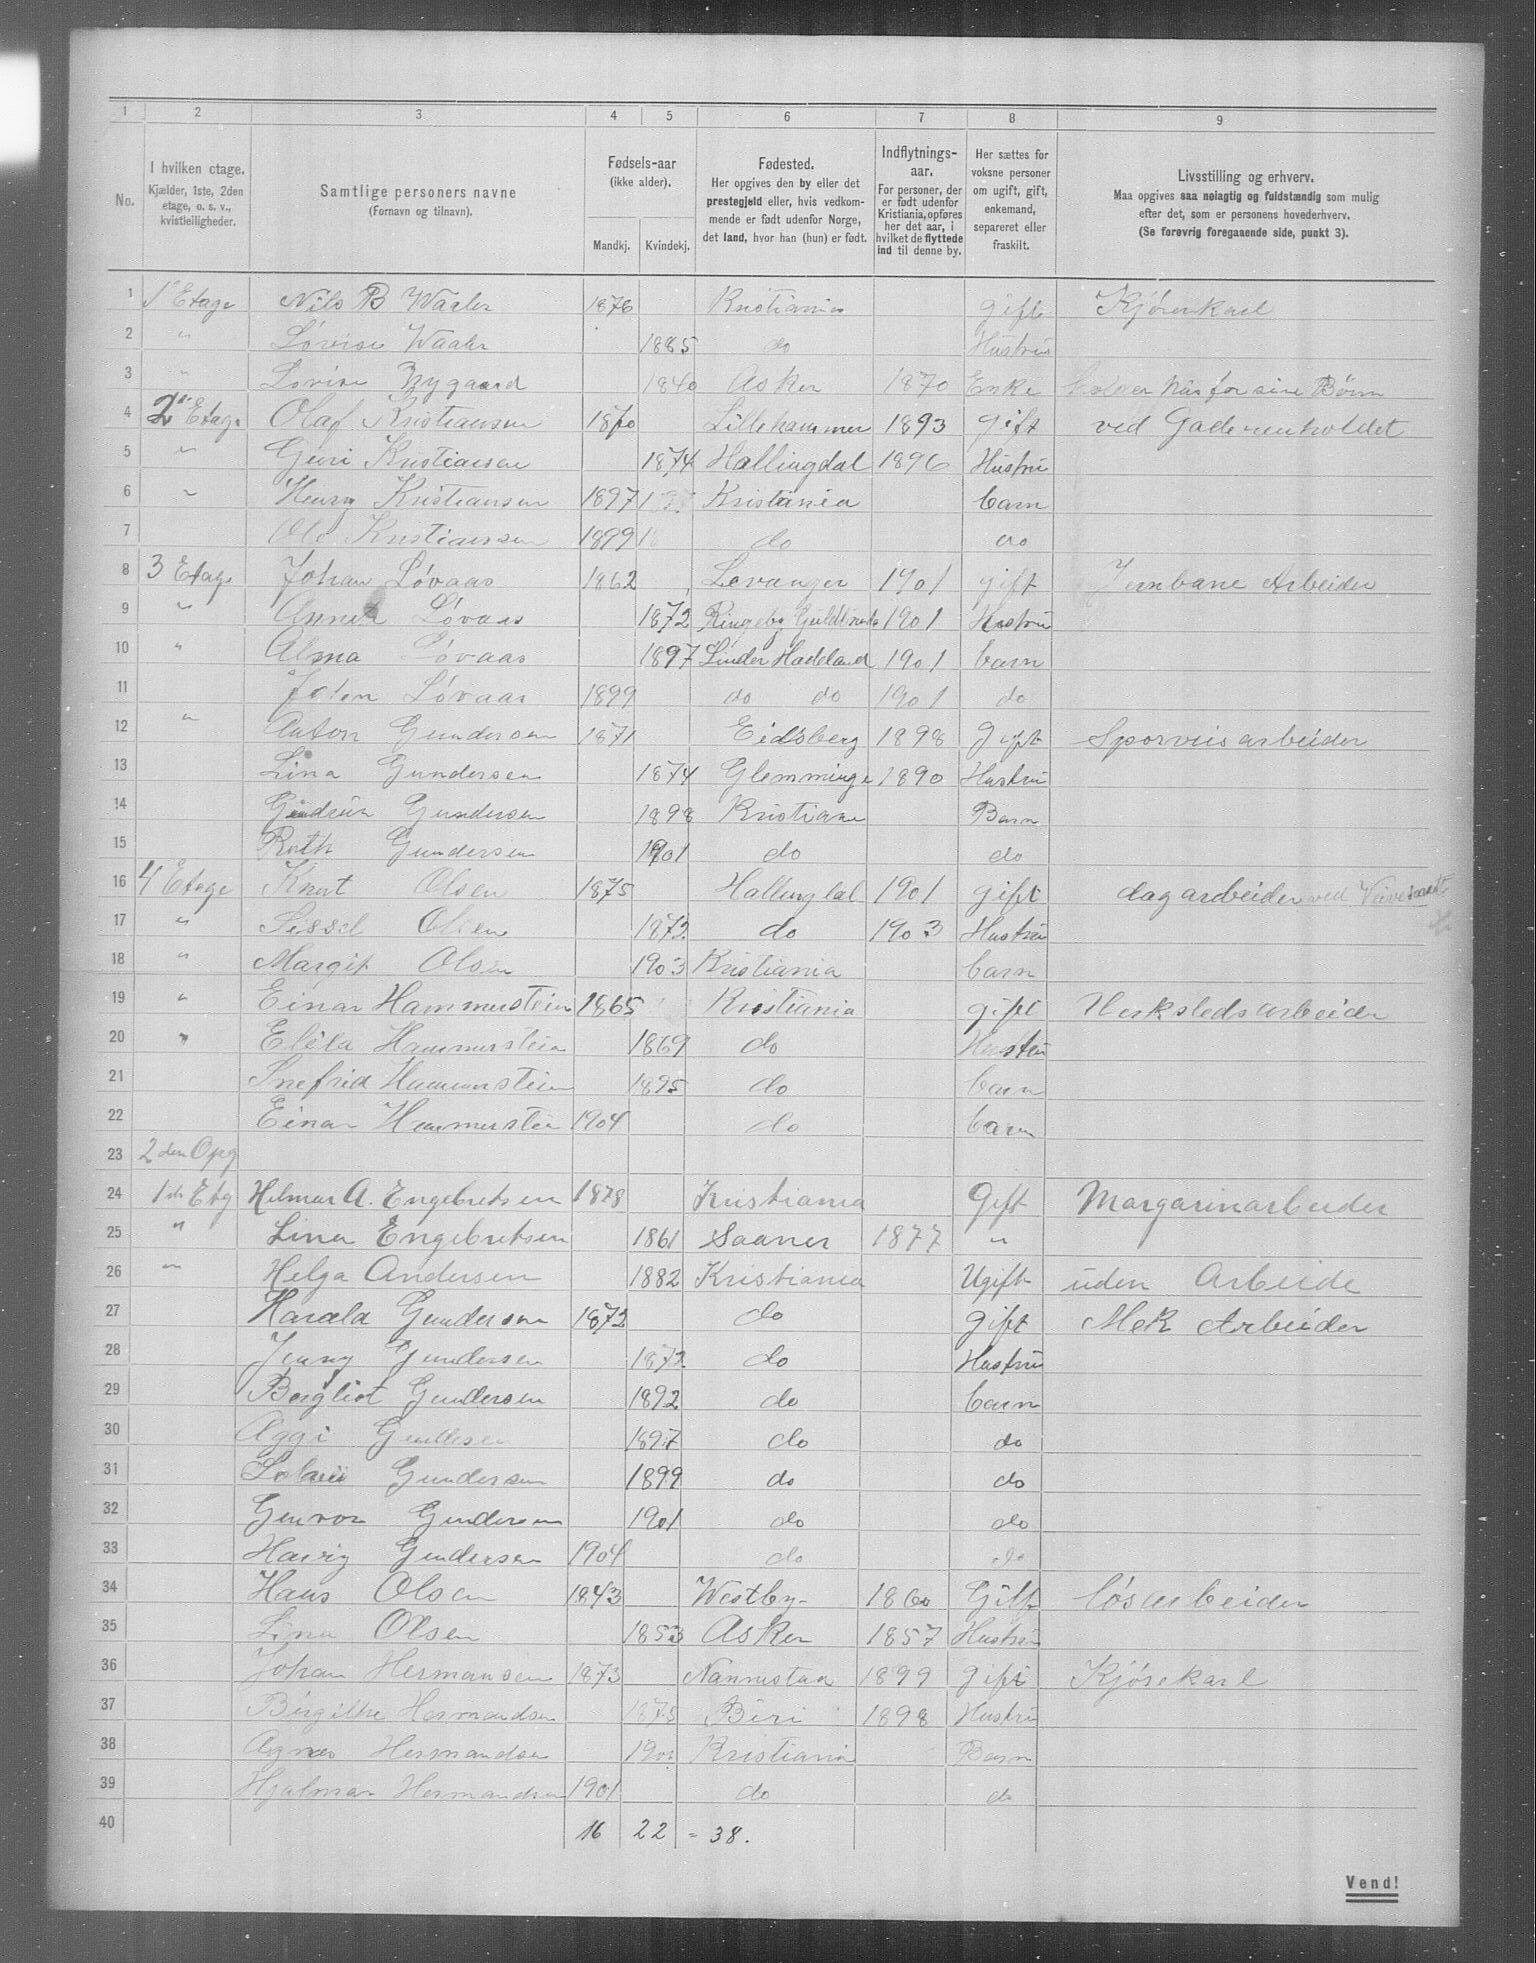 1 2 3 4 5 6 7 8 9
No.
I hvilken etage.
Kjælder, 1ste, 2den
etage, o. s. v.,
kvistleiligheder.
Samtlige personers navne
(Fornavn og tilnavn).
Fødsels-aar
(ikke alder).
Mandkj. Kvindekj.
Fødested.
Her opgives den by eller det
prestegjeld eller, hvis vedkom-
mende er født udenfor Norge,
det land, hvor han (hun) er født.
Indflytnings-
aar.
For personer, der
er født udenfor
Kristiania, opføres
her det aar, i
hvilket de flyttede
ind til denne by.
Her sættes for
voksne personer
om ugift, gift,
enkemand,
separeret eller
fraskilt.
Livsstilling og erhverv.
Maa opgives saa nøiagtig og fuldstændig som mulig
efter det, som er personens hovederhverv.
(Se forøvrig foregaaende side, punkt 3).
1 1 Etage Nils B Waaler 1876 Kristiania gift Kjørekarl
2 " Lovise Waaler 1885 do Hustru
3 " Lovise Nygaard 1840 Asker 1870 Enke hus for sine Børn
4 2 Etage Olaf Kristiansen 1870 Lillehammer 1893 gift ved Gaderenholdet
5 " Guri Kristiansen 1874 Hallingdal 1896 Hustru
6 " Henry Kristiansen 1897 Kristiania barn
7 Ole Kristiansen 1899 do do
8 3 Etage Johan Løvaas 1862 Levanger 1901 gift Jernbane Arbeider
9 " Anna Løvaas 1872 Ringebo 1901 Hustru
10 " Alma Løvaas 1897 Hadeland 1901 barn
11 Løvaas 1899 do do 1901 do
12 " Anton Gundersen 1871 Eidsberg 1898 gift Sporveisarbeider
13 Lina Gundersen 1874 Glemminge 1890 Hustru
14 Gudrun Gundersen 1898 Kristiania Barn
15 Ruth Gundersen 1901 do do
16 4 Etage Knut Olsen 1875 Hallingdal 1901 gift dagarbeider ved
17 " Sissel Olsen 1872 do 1903 Hustru
18 " Margit Olsen 1903 Kristiania barn
19 " Einar Hammerstein 1865 Kristiania gift Verkstedsarbeider
20 " Hammerstein 1869 do Hustru
21 Snefrid Hammerstein 1895 do barn
22 Einar Hammerstein 1904 do barn
23 2den Opg
24 1ste Etg Hilmar A. Engebretsen 1878 Kristiania Gift Margarinarbeider
25 " Lina Engebretsen 1861 Saaner 1877 "
26 " Helga Andersen 1882 Kristiania Ugift uden Arbeide
27 Harald Gundersen 1872 do gift Mek Arbeider
28 Jenny Gundersen 1872 do Hustru
29 Bergliot Gundersen 1892 do barn
30 Aggi Gundersen 1897 do do
31 Gundersen 1899 do do
32 Gunvor Gundersen 1901 do do
33 Harry Gundersen 1904 do do
34 Hans Olsen 1843 Westby 1860 Gift løsarbeider
35 Lina Olsen 1853 Asker 1857 Hustru
36 Johan Hermansen 1873 Nannestad 1899 gift Kjørekarl
37 Birgitte Hermandsen 1875 Biri 1898 Hustru
38 Agnes Hermandsen Kristiania Barn
39 Hjalmar Hermandsen 1901 do do
40 16 22 = 38.
Vend!